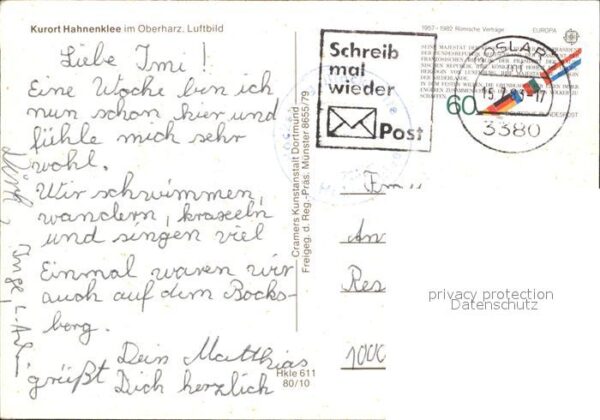 Kurort Hahnenklee im Oberharz. Luftbild
Liebe Imi!
Eine Woche bin ich
nun schon hier und
fühle mich sehr
wohl.
Wir schwimmen,
wandern, kraxeln
und singen viel
Einmal waren wir
auch auf dem Bocks-
berg.
Dein Matthias
grüßt Dich herzlich
Cramers Kunstanstalt Dortmund
Freigeg. d. Reg.-Präs. Münster 8655/79
Hkle 611
80/10
Schreib
mal
wieder
Post
1957-1982 Römische Verträge
EUROPA
GOSLAR 1
3380
60
DEUTSCHE BUNDESPOST
An
Res
1000
privacy protection
Datenschutz